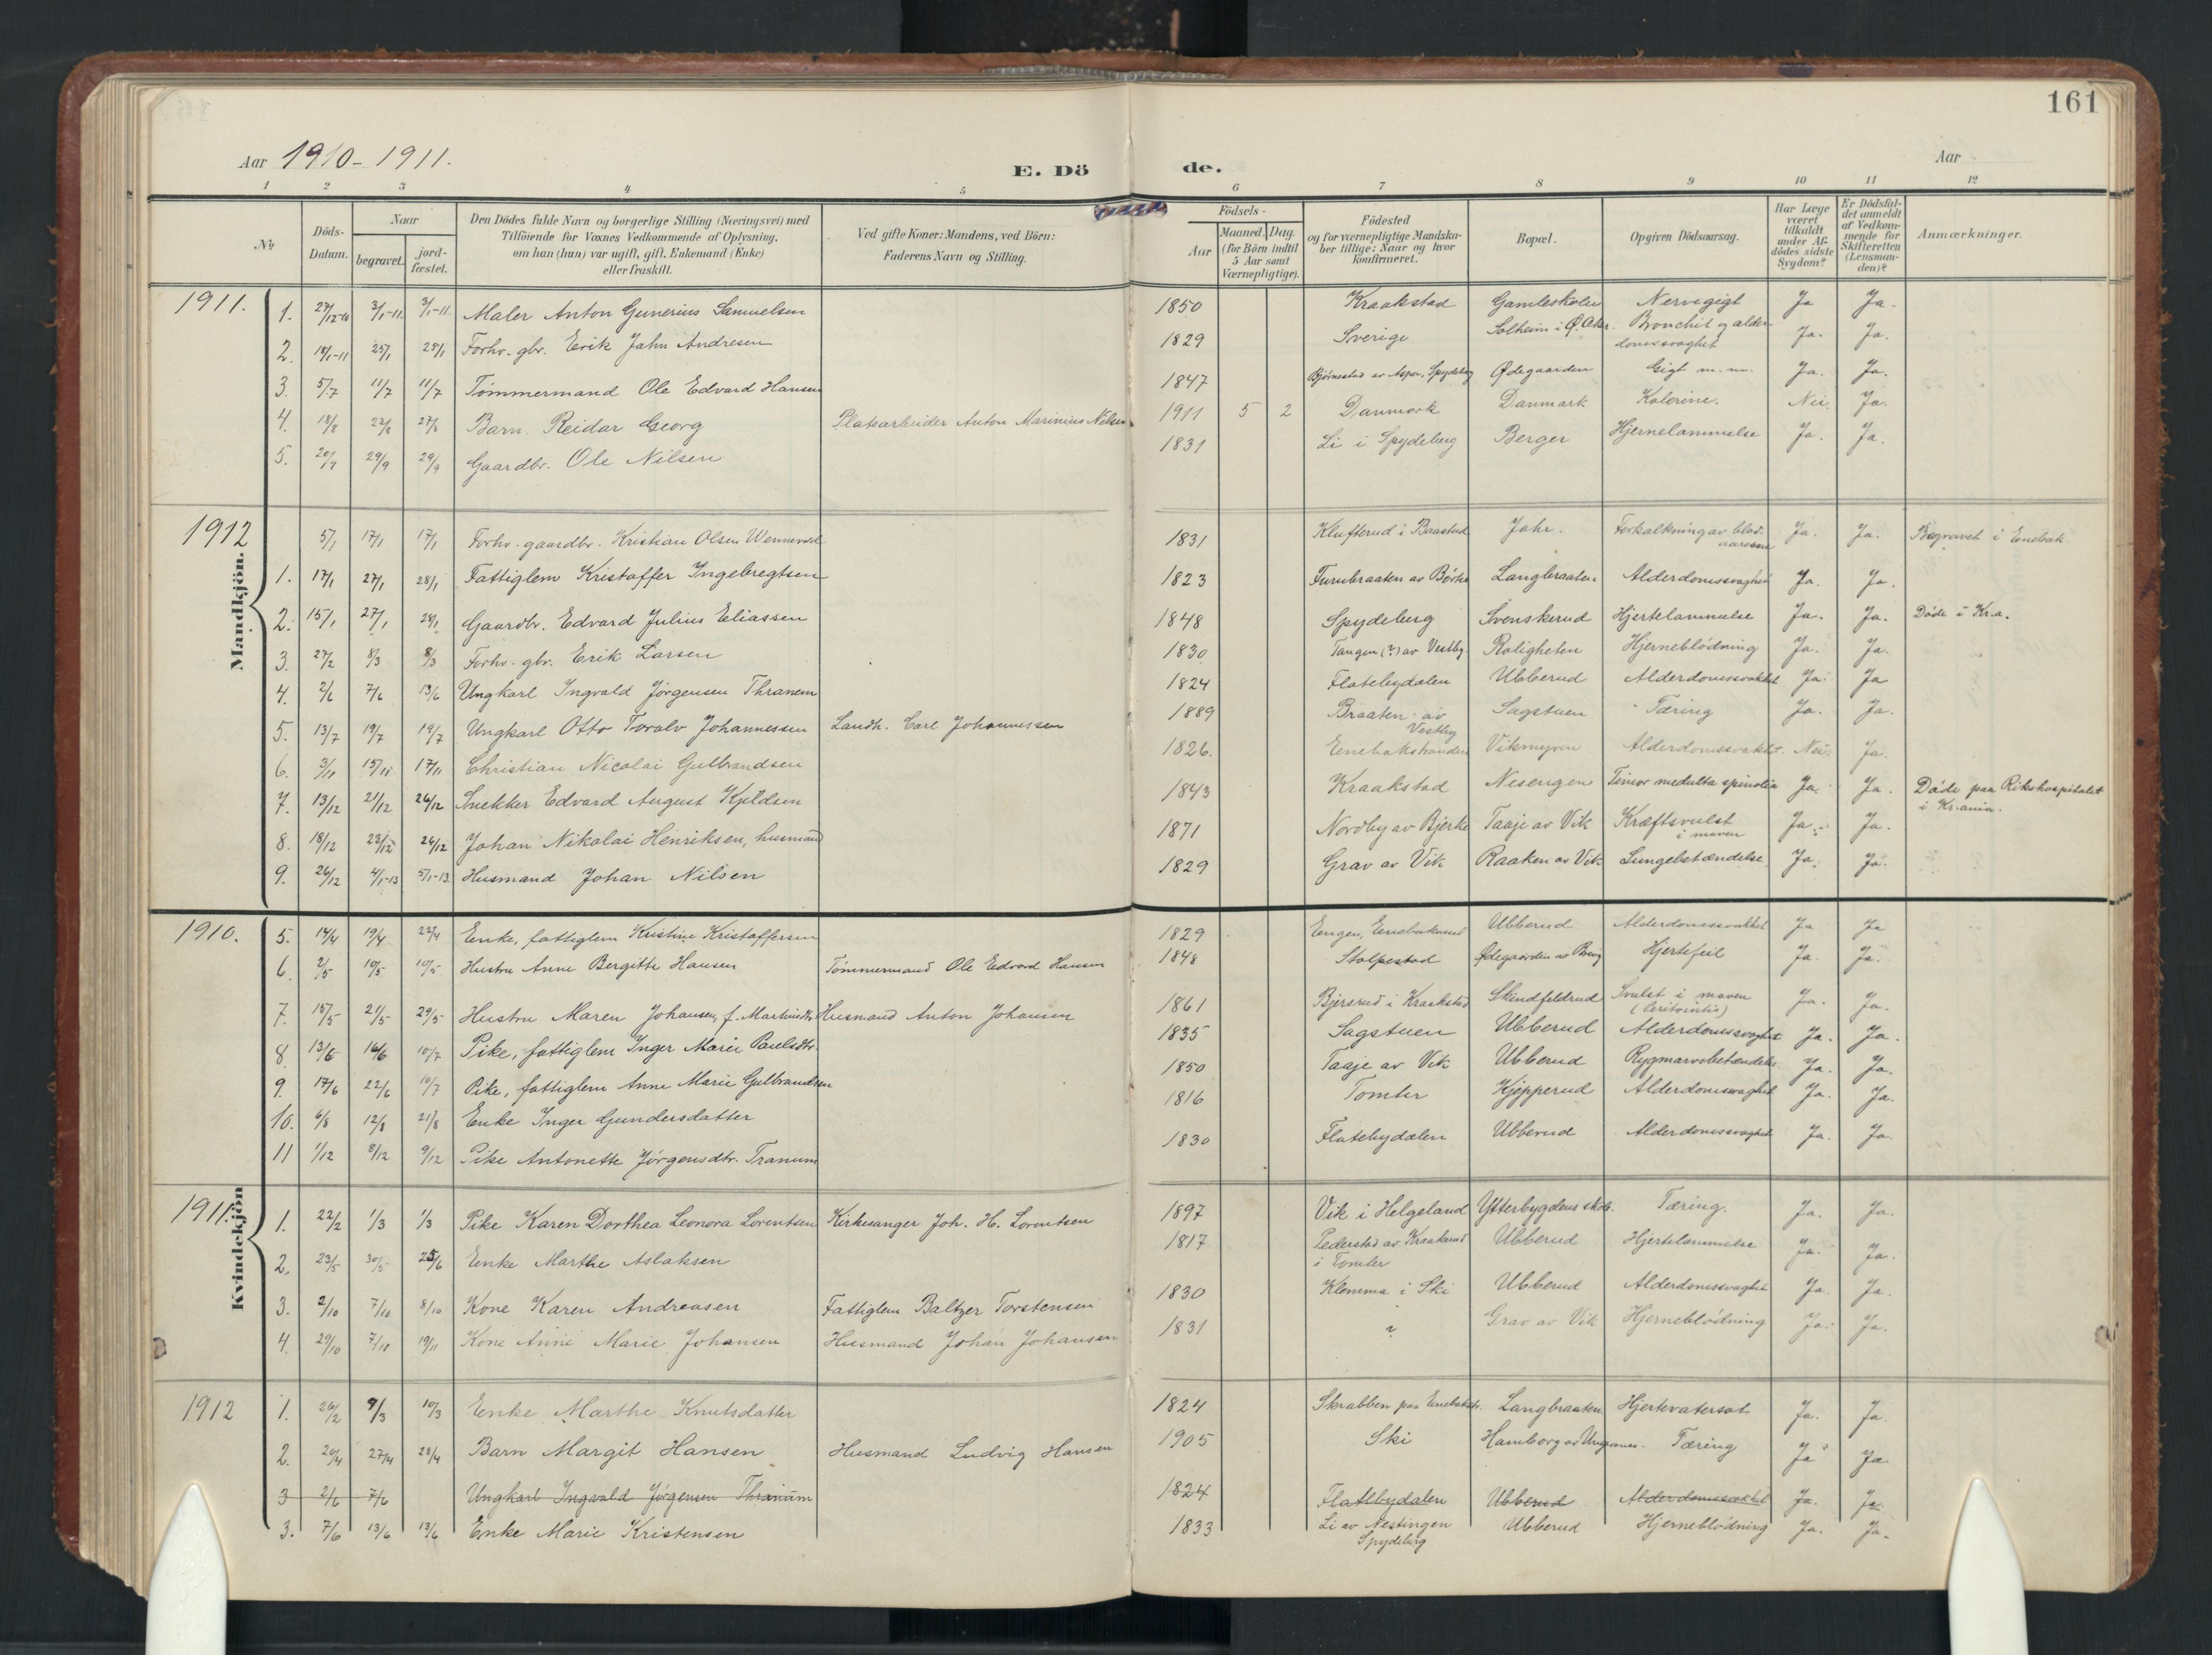 161
Aar 1910-1911. E. Dö de. Aar
1 2 3 4 5 6 7 8 9 10 11 12
№ Döds-Datum. Naar begravet. jord-fæstet. Den Dödes fulde Navn og borgerlige Stilling (Næringsvei) med Tilföiende for Voxnes Vedkommende af Oplysning, om han (hun) var ugift, gift, Enkemand (Enke) eller fraskilt. Ved gifte Koner: Mandens, ved Börn: Faderens Navn og Stilling. Födsels- Aar Maaned. Dag. (for Börn indtil 5 Aar samt Værnepligtige). Födested og for værnepligtige Mandskaber tillige: Naar og hvor konfirmeret. Bopæl. Opgiven Dödsaarsag. Har Læge været tilkaldt under Afdödes sidste Sygdom? Er Dödsfaldet anmeldt af Vedkommende for Skifteretten (Lensmanden)? Anmærkninger.
Mandkjön.
1911. 1. 27/12-10 3/1-11. 3/1-11. Maler Anton Gunerius Samuelsen 1850 Kraakstad Gamleskolen Nervegigt Ja Ja.
2. 18/1-11 25/1 28/1 Forhv. gbr. Erik Jahn Andresen 1829 Sverige Solheim i Ø. Bronchit og alderdomssvaghet Ja. Ja.
3. 5/7 11/7 11/7 Tømmermand Ole Edvard Hansen 1847 Bjørnestad av Spydeberg Ødegaarden Gigt m.m. Ja. Ja.
4. 18/8 27/8 27/8 Barn Reidar Georg Anton Marinius Nilsen 1911 5 2 Danmark Danmark Kolerine. Nei. Ja.
5. 20/9 29/9 29/9 Gaardbr. Ole Nilsen 1831 Li i Spydeberg Berger Hjernelammelse Ja. Ja.
1912 5/1 17/1 17/1 Forhv. gaardbr. Kristian Olsen 1831 Klufterud i Baastad Jahr. Forkalkning av blodaarerne Ja. Ja. Begravet i Enebak
1. 17/1 27/1 28/1 Fattiglem Kristoffer Ingebregtsen 1823 Langbraaten Alderdomssvaghet Ja. Ja.
2. 15/1 27/1 28/1 Gaardbr. Edvard Julius Eliassen 1848 Spydeberg Svenskerud Hjertelammelse Ja. Ja. Døde i Kr.a.
3. 27/2 8/3 8/3 Forhv. gbr. Erik Larsen 1830 Tangen (?) av Vestby Roligheten Hjerneblødning Ja. Ja.
4. 2/6 7/6 13/6 Ungkarl Ingvald Jørgensen Thranem 1824 Flatebydalen Ubberud Alderdomssvakhet Ja. Ja
5. 13/7 19/7 19/7 Ungkarl Otto Toralv Johannessen Landh. Carl Johannessen 1889 Braaten av Vestby Sagstuen Tæring Ja. Ja.
6. 3/11 15/11 17/11 Christian Nicolai Gulbrandsen 1826. Enebakstranden Vikmyren Alderdomssvakhet. Nei. Ja.
7. 13/12 21/12 26/12 Snekker Edvard August Kjeldsen 1843 Kraakstad Nesengen Timor medulla spinolia Ja. Ja. Døde paa Rikshospitalet i Kr.ania.
8. 18/12 23/12 26/12 Johan Nikolai Henriksen, husmand 1871 Nordby av Bjerke Taaje av Vik Kræftsvulst i maven Ja. Ja.
9. 26/12 4/1-13 5/1-13. Husmand Johan Nilsen 1829 Grav av Vik Raaken av Vik Lungebetændelse Ja. Ja.
Kvindekjön
1910. 5. 14/4 19/4 22/4 Enke, fattiglem Kristine Kristoffersen 1829 Engen, Ubberud Alderdomssvakhet Ja Ja
6. 2/5 10/5 10/5 Hustru Anne Bergitte Hansen Tømmermand Ole Edvard Hansen 1848 Stolpestad Ødegaarden av Hjertefeil Ja. Ja.
7. 15/5 21/5 29/5 Hustru Maren Johansen, f. Martinsdtr. Husmand Anton Johansen 1861 Bjersrud i Kraakstad Skindfeldrud Svulst i maven Ja. Ja.
8. 13/6 16/6 10/7 Pike, fattiglem Inger Marie Paulsdtr. 1835 Sagstuen Ubberud Alderdomssvaghet Ja. Ja.
9. 17/6 22/6 10/7 Pike, fattiglem Anne Marie Gulbrandsen 1850 Taaje av Vik Ubberud Rygmarvsbetændelse Ja. Ja.
10. 6/8 12/8 21/8 Enke Inger Gundersdatter 1816 Tomter Kjepperud Alderdomssvaghet Ja. Ja.
11 1/12 8/12 9/12 Pike Antonette Jørgensdtr. Tranum 1830 Flatebydalen Ubberud Alderdomssvaghet Ja. Ja.
1911. 1. 22/2 1/3 1/3 Pike Karen Dorthea Leonora Lorentsen Kirkesanger Joh. H. Lorentsen 1897 Vik i Helgeland Ytterbygdens skole. Tæring. Ja. Ja.
2. 23/5 30/5 25/6 Enke Marthe Aslaksen 1817 Pederstad av Kraakerud i Tomter Ubberud Hjertelammelse Ja. Ja.
3. 2/10 7/10 8/10 Kone Karen Andreasen Fattiglem Baltzer Torstensen 1830 Klemma i Ski Ubberud Alderdomssvaghet Ja. Ja.
4. 29/10 7/11 19/11 Kone Anne Marie Johansen Husmand Johan Johansen 1831 ? Grav av Vik Hjerneblødning Ja. Ja.
1912 1. 26/2 9/3 10/3 Enke Marthe Knutsdatter 1824 Skrabben paa Enebakstr. Langbraaten Hjertevatersot Ja. Ja.
2. 20/4 27/4 28/4 Barn Margit Hansen Husmand Ludvig Hansen 1905 Ski Hamborg av Tæring Ja Ja
3 2/6 7/6 Ungkarl Ingvald Jørgensen Thranum 1824 Flatebydalen Ubberud Alderdomssvakhet Ja. Ja.
3. 7/6 13/6 13/6 Enke Marie Kristensen 1833 Li av Nestingen Spydeberg Ubberud Hjerneblødning Ja. Ja.